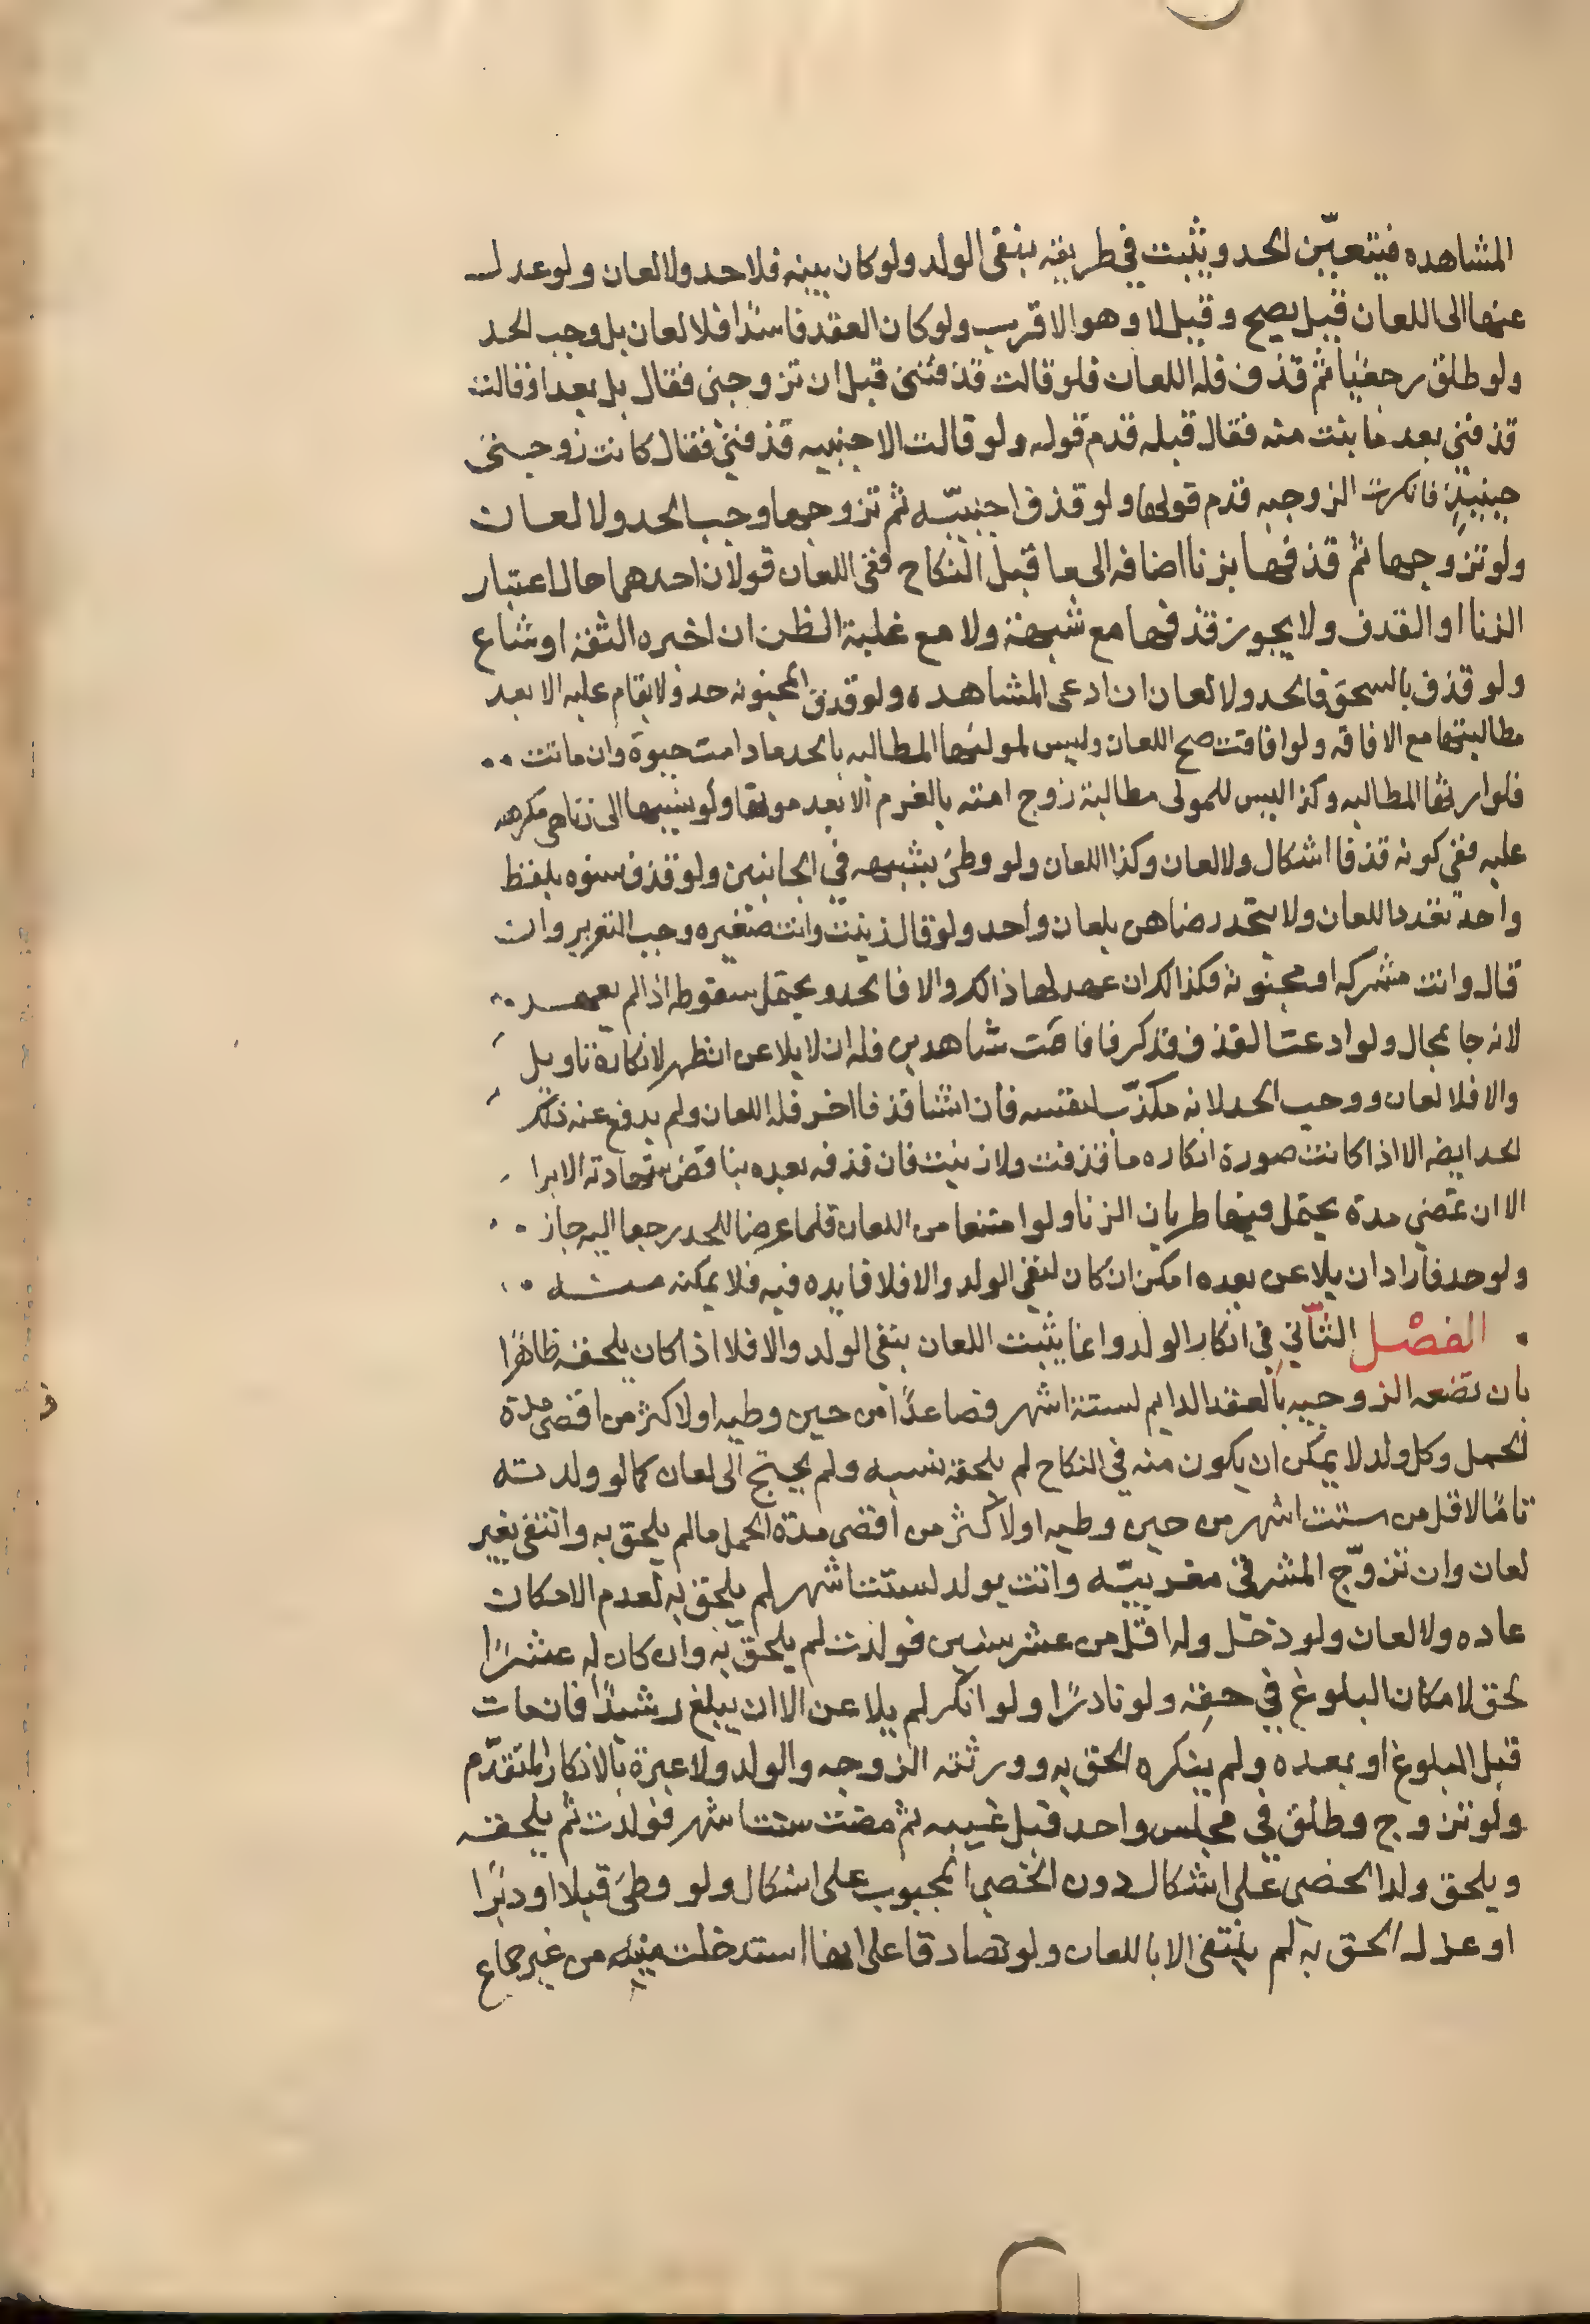 المشاهده فيتعيّن الحد ويثبت في طريقه بنفى الولد ولو كان بينه فلا حد ولا لعان ولو عدل
عنها الى اللعان قيل يصح وقيل لا وهو الاقرب ولو كان العقد فاسدًا فلا لعان بل وجب الحد
ولو طلق رجعيا ثم قذف فله اللعان فلو قالت قذفتنى قبل ان تزوجنى فقال بل بعد او قالت
قذفتنى بعد ما بنت منه فقال قبله قدم قوله ولو قالت الاجنبيه قذفتنى فقال كانت زوجتى
حينيذٍ فانكرت الزوجيه قدم قولها ولو قذف اجنبيّه ثم تزوجها وجب الحد ولا لعان
ولو تزوجها ثم قذفها بزنا اضافه الى ما قبل النكاح ففى اللعان قولان احدهما حال اعتبار
الزنا او القذف ولا يجوز قذفها مع شبهة ولا مع غلبة الظن ان اخبره الثقة او شاع
ولو قذف بالسحق فالحد ولا لعان ان ادعى المشاهده ولو قذف المجنونه حد ولا يقام عليه الا بعد
مطالبتها مع الافاقه ولو افاقت صح اللعان وليس لمولها المطالبه بالحد ما دامت حيوة وان ماتت
فلوارثها المطالبه وكذا ليس للمولى مطالبة زوج امته بالغرم الا بعد موتها ولو ينسبها الى زنا هى مكرهه
عليه ففى كونه قذفا اشكال ولا لعان وكذا اللعان ولو وطئ بشبهه في الجانبين ولو قذف نسوه بلفظ
واحدة تعدد اللعان ولا يتحد رضاهن بلعان واحد ولو قال زنيت وانت صغيره وجب التعزير وان
قال وانت مشركه او مجنونه فكذالك ان عهد لها ذالك والا فالحد ويحتمل سقوطه اذا لم يعهد
لانه جا بمحال ولو ادعت القذف فذكر فاقامت شاهدين فله ان لا يلاعن ان ظهر لانكارة تاويل
والا فلا لعان ووجب الحد لانه مكذّب لنفسه فان انشا قذفا اخر فله اللعان ولم يدفع عنه ذلك
لحد ايضه الا اذا كانت صورة انكاره ما قذفت ولا زنيت فان قذفه بعده يناقض شهادته الابرا
الا ان تمضي مدة يحتمل فيها طريان الزنا ولو امتنعا من اللعان فلما عرضا للحد رجعا اليه جاز
ولو حد فاراد ان يلاعن بعده امكن ان كان لنفى الولد والا فلا فايده فيه فلا يمكنه منه
الفصل الثاني في انكار الولد وانما يثبت اللعان بنفى الولد والا فلا اذا كان يلحقه ظاهرًا
بان تضعه الزوجيه بالعقد الدايم لستة اشهر فصاعدًا من حين وطيه او لاكثر من اقصى مدة
لحمل وكل ولد لا يمكن ان يكون منه في النكاح لم يلحقه نسبه ولم يحتج الى لعان كما لو ولدته
تامًا لاقل من ستت اشهر من حين وطيه او لاكثر من اقصى مدة الحمل ما لم يلحق به وانتفى بغير
لعان وان تزوّج المشرقى مغربيّه واتت بولد لستت اشهر لم يلحق به لعدم الامكان
عاده ولا لعان ولو دخل وله اقل من عشر سنين فولدت لم يلحق به وان كان له عشرًا
لحق لامكان البلوغ في حقه ولو نادرًا ولو انكر لم يلاعن الا ان يبلغ رشيدًا فان مات
قبل البلوغ او بعده ولم ينكره الحق به وورثته الزوجه والولد ولا عبرة بالانكار المتقدّم
ولو تزوج وطلق في مجلس واحد قبل غيبه ثم مضت ستت اشهر فولدت ثم يلحقه
ويلحق ولد الخصى على اشكال دون الخصى المجبوب على اشكال ولو وطى قبلا او دبرًا
او عزل الحق به لم ينتفى الا باللعان ولو تصادقا على انها استدخلت منيه من غير جماع